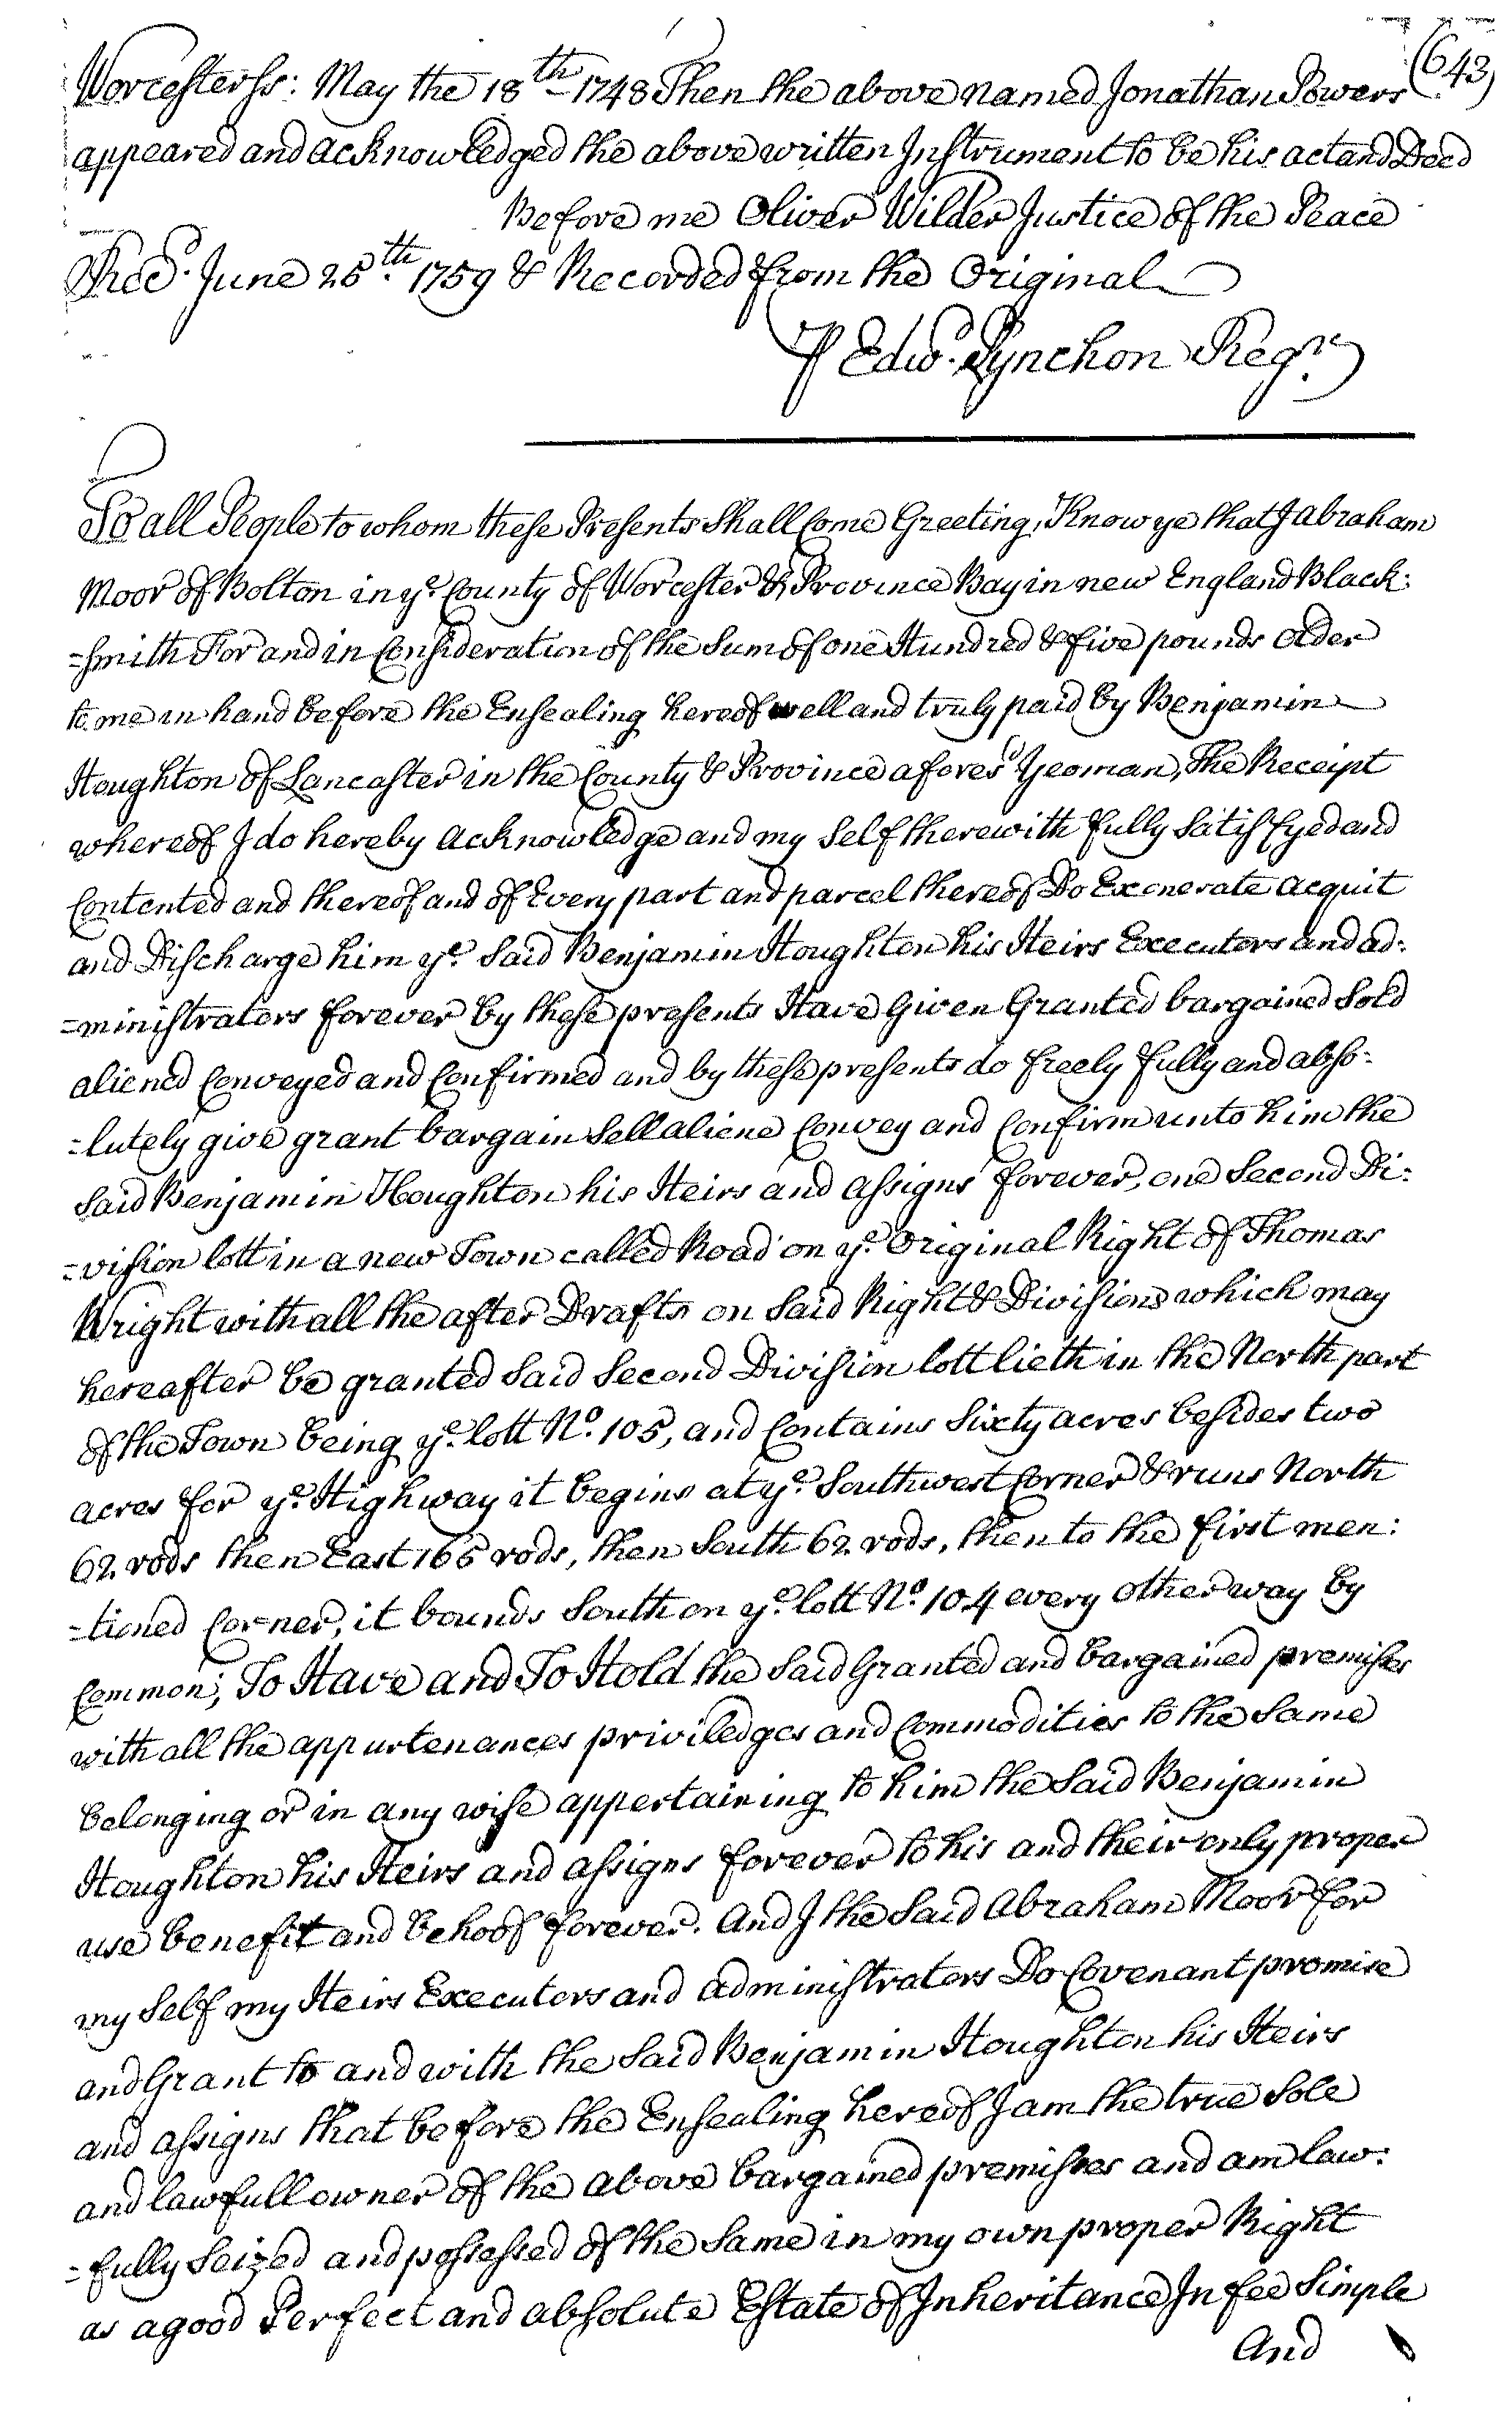 (643)
Worcester ss: May the 18th 1748 Then the above named Jonathan Powers
appeared and acknowledged the above written Instrument to be his act and Deed
Before me Oliver Wilder Justice of the Peace
Recd. June 25th. 1759 & Recorded from the Original
P Edwd. Pynchon Regr.
To all People to whom these Presents Shall Come Greeting, Know ye that I Abraham
Moor of Bolton in ye. County of Worcester & Province Bay in new England Black:
=smith For and in Consideration of the Sum of one Hundred & five pounds older
to me in hand before the Ensealing hereof well and truly paid by Benjamin
Houghton of Lancaster in the County & Province aforesd Yeoman, The Receipt
whereof I do hereby acknowledge and my Self therewith fully Satisfyed and
Contented and thereof and of Every part and parcel thereof Do Exonerate acquit
and Discharge him ye. Said Benjamin Houghton his Heirs Executors and ad:
=ministrators forever by these presents Have Given Granted bargained Sold
aliened Conveyed and Confirmed and by these presents do freely fully and abso:
=lutely give grant bargain Sell aliene Convey and Confirm unto him the
Said Benjamin Houghton his Heirs and assigns forever, one Second Di:
=vision lott in a new Town called Road on ye. Original Right of Thomas
Wright with all the after Drafts on Said Right & Divisions which may
hereafter be granted Said Second Division lott lieth in the North part
of the Town being ye. lott No. 105, and Contains Sixty acres besides two
acres for ye. Highway it begins at ye. Southwest Corner & runs North
62 rods then East 165 rods, then South 62 rods, then to the first men:
=tioned Corner, it bounds South on ye. lott No. 104 every other way by
Common; To Have and To Hold the Said Granted and bargained premisses
with all the appurtenances priviledges and Commodities to the Same
belonging or in any wise appertaining to him the Said Benjamin
Houghton his Heirs and assigns forever to his and their only proper
use benefit and behoof forever. And I the Said Abraham Moor for
my Self my Heirs Executors and administrators Do Covenant promise
and Grant to and with the Said Benjamin Houghton his Heirs
and assigns that before the Ensealing hereof I am the true Sole
and lawfull owner of the above bargained premisses and am law:
=fully Seized and possessed of the Same in my own proper Right
as a good Perfect and absolute Estate of Inheritance In fee Simple
And